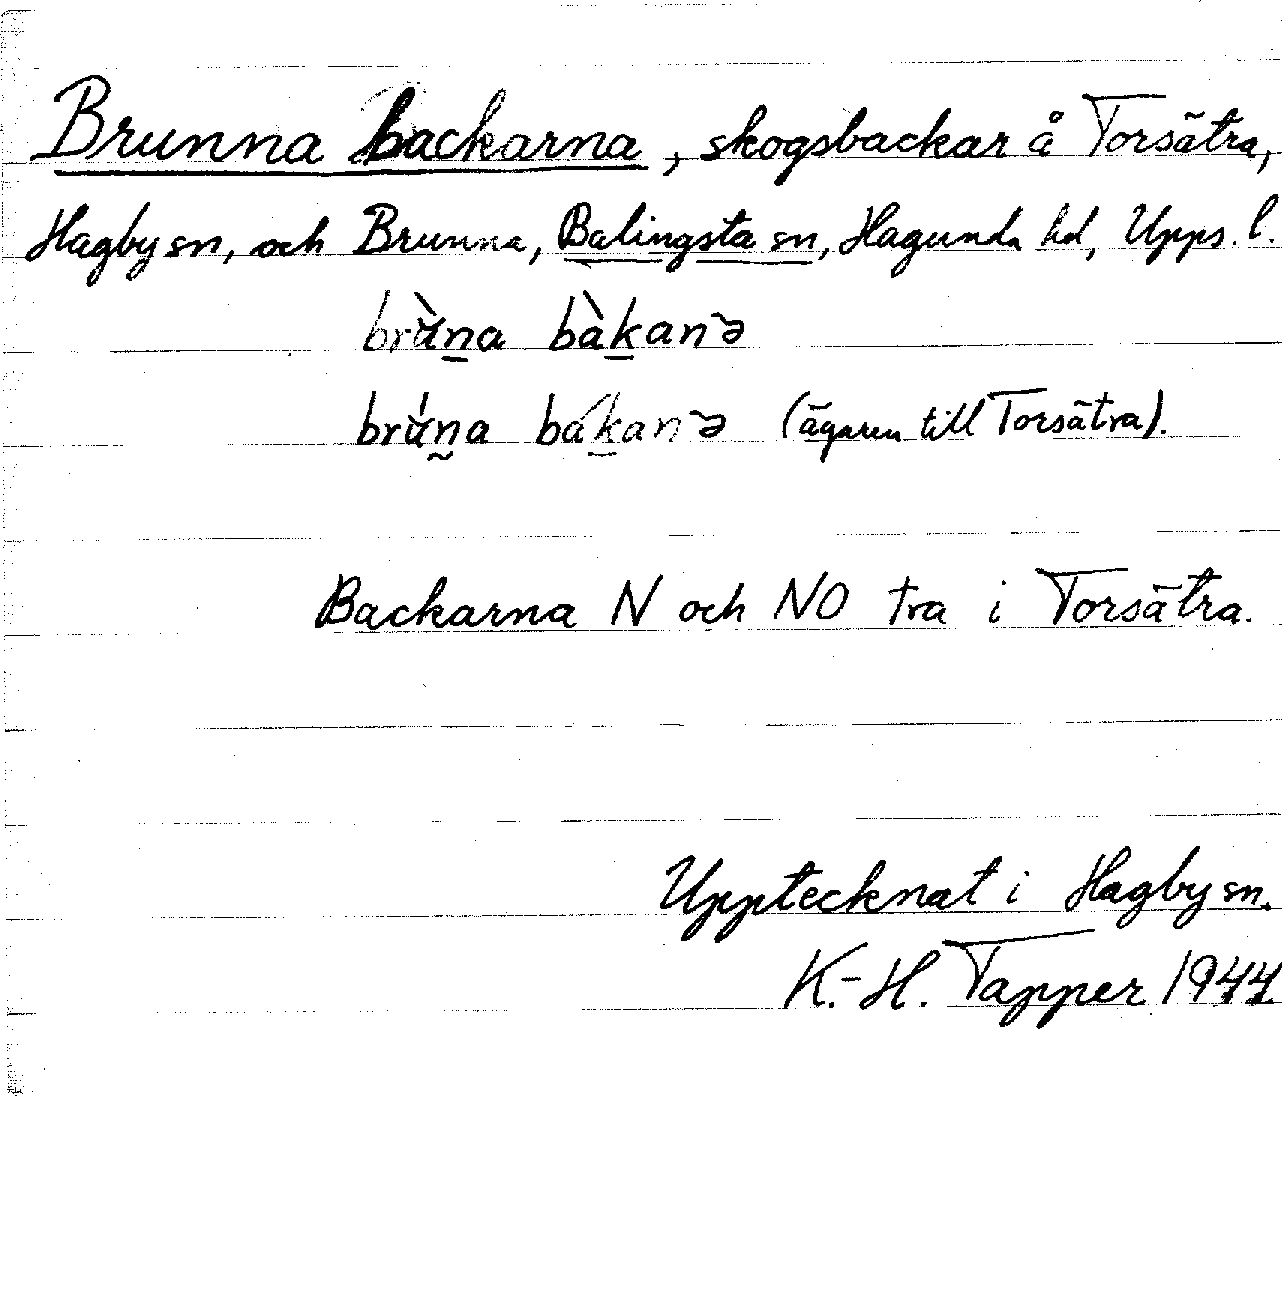 Brunna backarna, skogsbackar å Torsätra,
Hagby sn, och Brunna, Balingsta sn, Hagunda hd, Upps. l.
brùna bàkanə
brúna bákanə (ägaren till Torsätra).
Backarna N och NO tra i Torsätra.
Upptecknat i Hagby sn.
K.-H. Tapper 1944